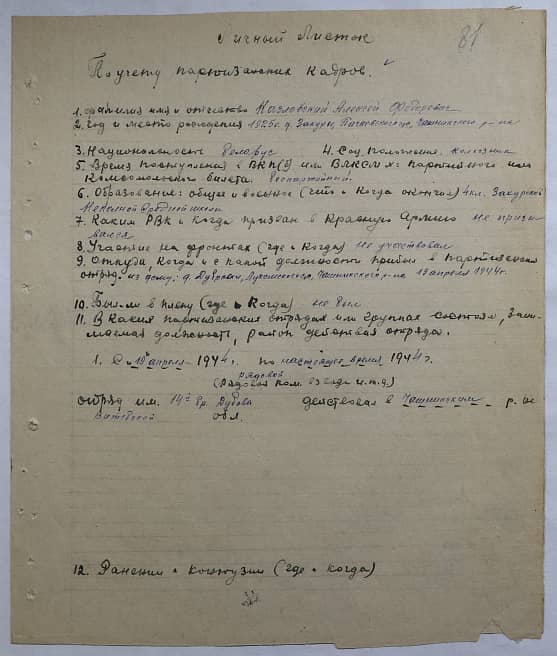 Личный Листок
81
По учету партизанских кадров.
1. Фамилия имя и отчество Козловский Алексей Федорович
2. Год и место рождения 1925г. д. Закури, Чашникского р-на
3. Национальность беларус 4. Соц положение. колхозник
5. Время поступления в ВКП(б) или ВЛКСМ №: партийного или
Комсомольского билета. беспартейной
6. Образование: общее и военное (что и когда окончил) 4кл. Закурской
Неполной Средней школ
7. Каким РВК и когда призван в Красную Армию не призы
вался
8. Участие на фронтах (где и когда) не участвовал
9. Откуда, когда и с какой должности прибыл в партизанский
отряд. из дому; д. Дубровки, Лукомльского, Чашникского р-на 19 апреля 1944г.
10. Был-ли в плену (где и когда) не был
11. В каких партизанских отрядах или группах состоял, зани-
маемая должность, район действия отряда.
1. С „19" апреля 1944г. по настоящее время 1944г.
рядовой
(Рядовой ком. взвода и.т.д.)
отряд им. 14й бр. Дубова действовал в Чашникском р. не
Витебской обл.
12. Ранения и контузии (где и когда)